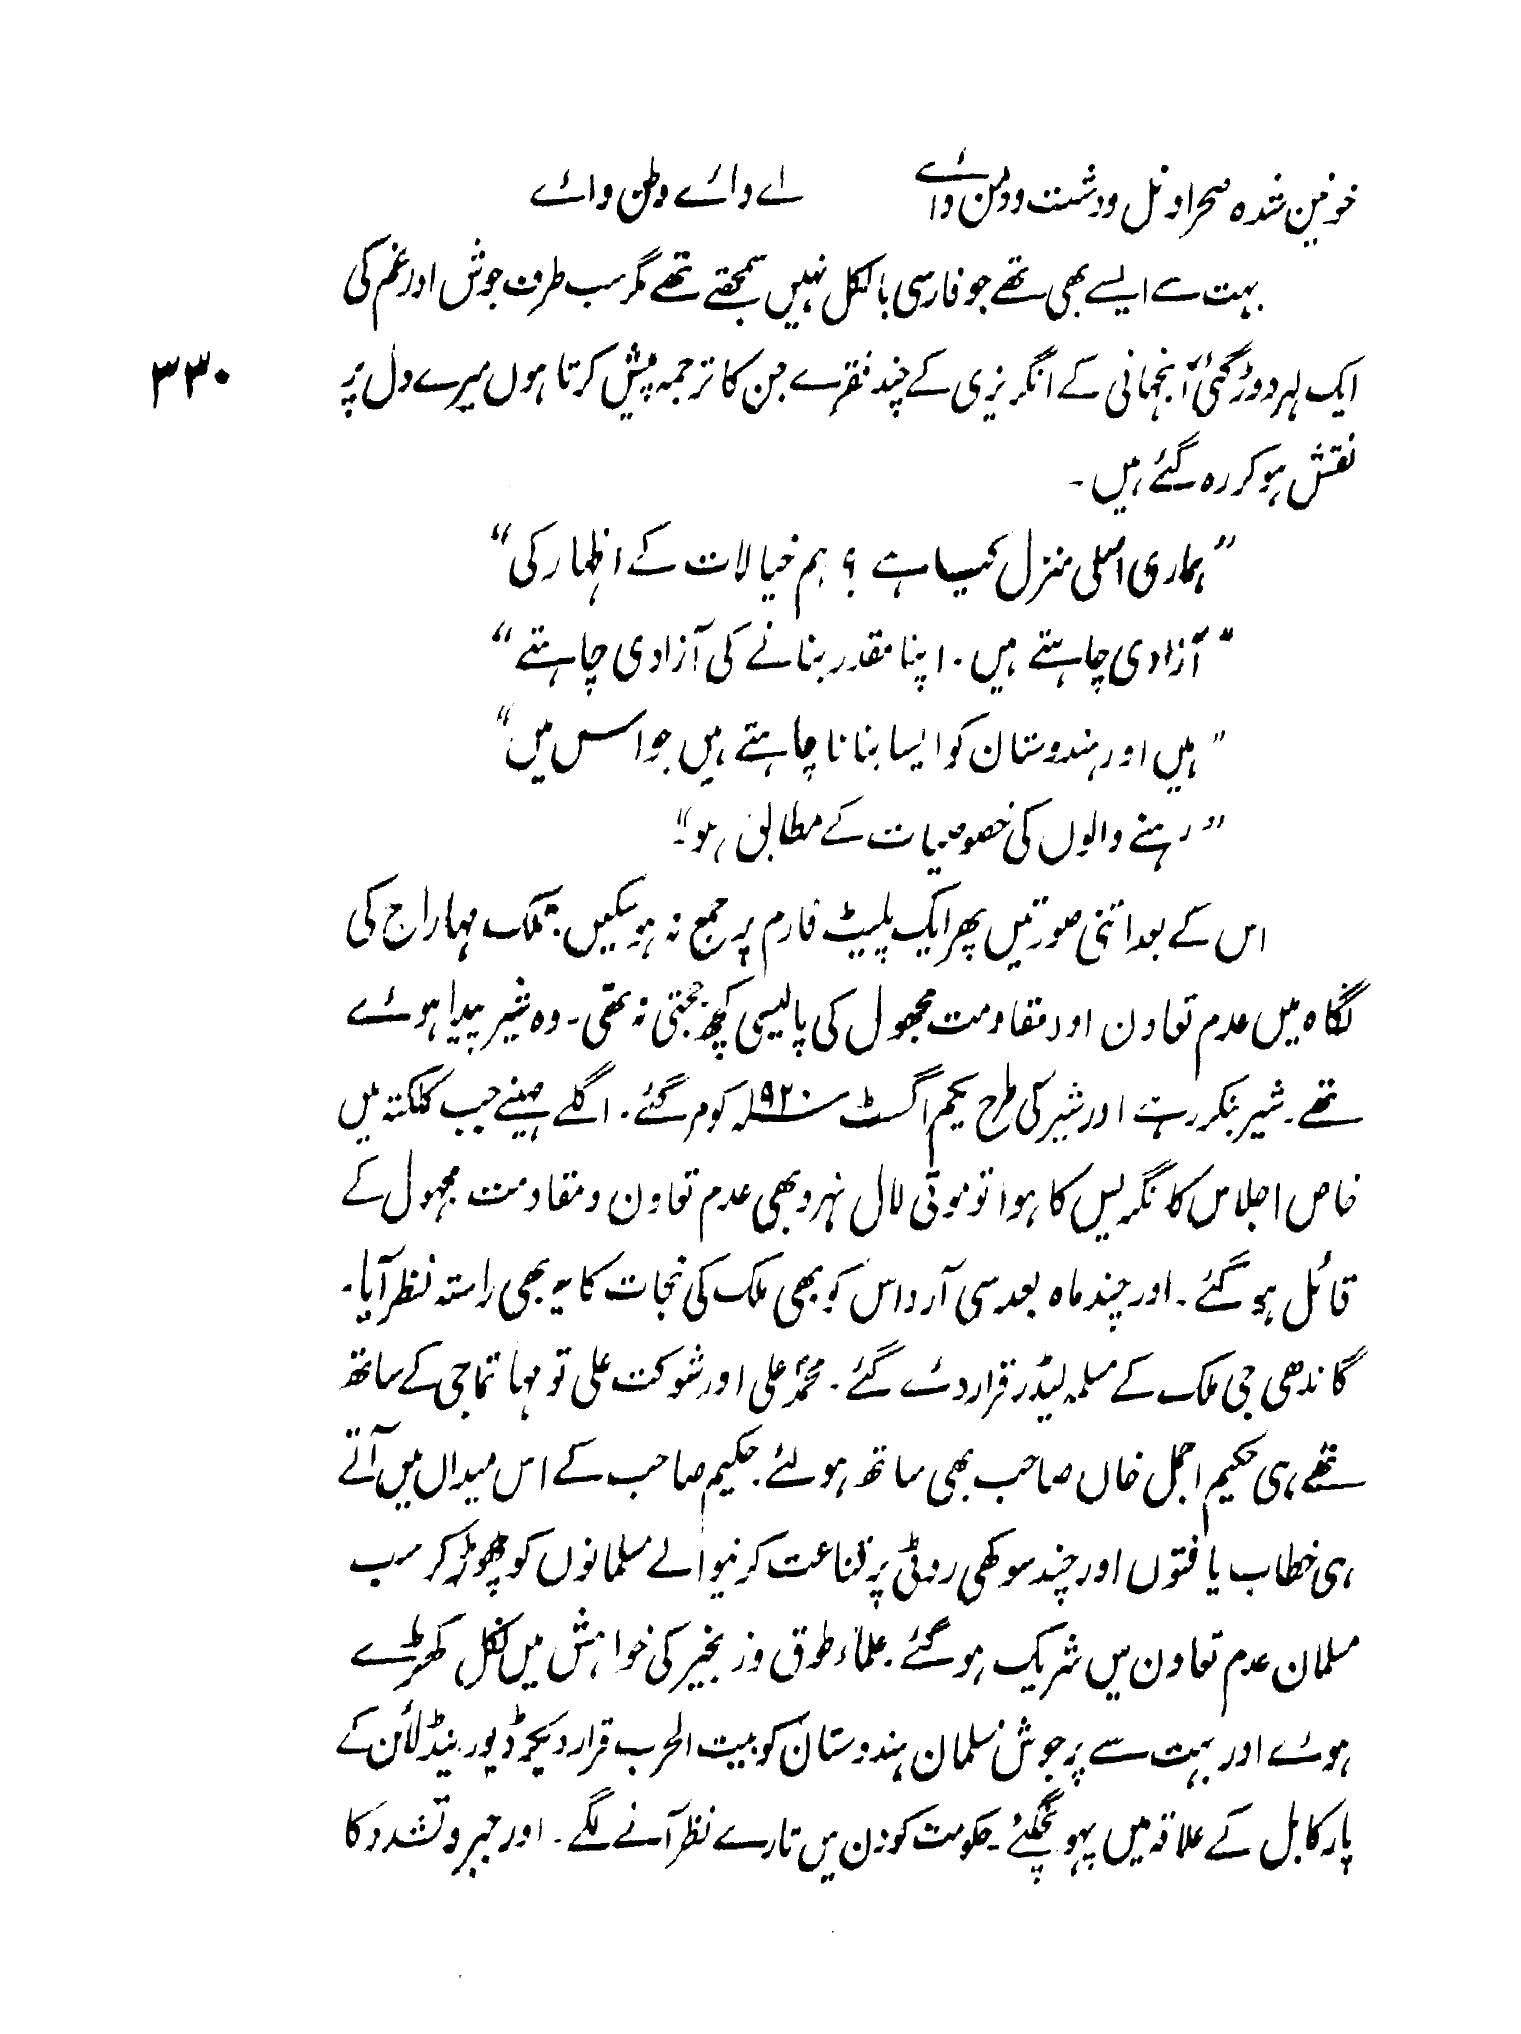 خونیں شدہ صحرا و تل و دشت و دمن وائے اے وائے وطن وائے
بہت سے ایسے بھی تھے جو فارسی بالکل نہیں سمجھتے تھے مگر سب طرف جوش اور غم کی
ایک لہر دوڑ گئی آنجہانی کے انگریزی کے چند فقرے جن کا ترجمہ پیش کرتا ہوں میرے دل پر
۳۳۰
نقش ہو کر رہ گئے ہیں۔
"ہماری اصلی منزل کیا ہے ؟ ہم خیالات کے اظہار کی"
"آزادی چاہتے ہیں۔ اپنا مقدر بنانے کی آزادی چاہتے"
"ہیں اور ہندوستان کو ایسا بنانا چاہتے ہیں جو اس میں"
"رہنے والوں کی خصوصیات کے مطابق ہو۔"
اس کے بعد اتنی صورتیں پھر ایک پلیٹ فارم پر جمع نہ ہو سکیں۔ تلک مہاراج کی
نگاہ میں عدم تعاون اور مقاومت مجہول کی پالیسی کچھ جچتی نہ تھی۔ وہ شیر پیدا ہوئے
تھے۔ شیر بنکر رہے اور شیر کی طرح یکم اگست ۱۹۲۰ء کو مر گئے۔ اگلے مہینے جب کلکتہ میں
خاص اجلاس کانگریس کا ہوا تو موتی لال نہرو بھی عدم تعاون و مقاومت مجہول کے
قائل ہو گئے۔ اور چند ماہ بعد سی آر داس کو بھی ملک کی نجات کا یہ بھی راستہ نظر آیا۔
گاندھی جی ملک کے مسلمہ لیڈر قرار دئے گئے۔ محمد علی اور شوکت علی تو مہاتما جی کے ساتھ
تھے ہی حکیم اجمل خاں صاحب بھی ساتھ ہو لئے۔ حکیم صاحب کے اس میدان میں آتے
ہی خطاب یافتوں اور چند سوکھی روٹی پر قناعت کرنیوالے مسلمانوں کو چھوڑ کر سب
مسلمان عدم تعاون میں شریک ہو گئے۔ علماء طوق و زنجیر کی خواہش میں نکل کھڑے
ہوئے اور بہت سے پرجوش مسلمان ہندوستان کو بیت الحرب قرار دیکر ڈیورینڈ لائن کے
پار کابل کے علاقہ میں پہونچ گئے۔ حکومت کو دن میں تارے نظر آنے لگے۔ اور جبر و تشدد کا